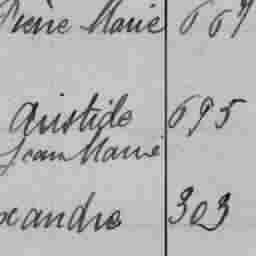 Pierre Marie 667
Aristide 695
Jean Marie
xandre 303